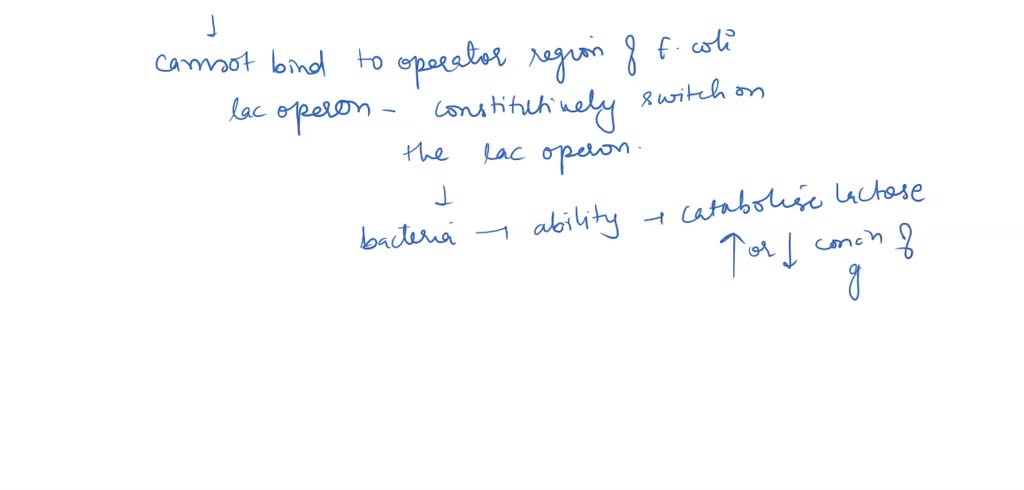 ↓
cannot bind to operator region of E. coli
lac operon - constitutively switch on
the lac operon.
↓
bacteria → ability → catabolise lactose
↑ or ↓ concn of
g